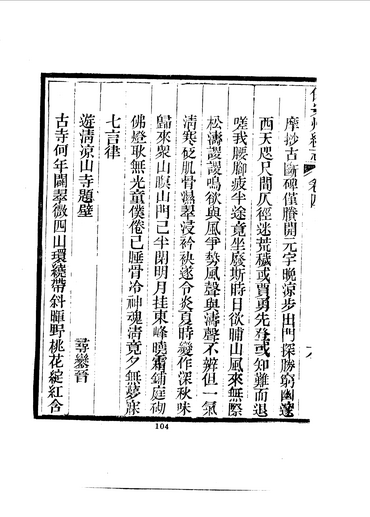 卷四
摩挲古斷碑僅賸開元字晚涼步出門探勝窮幽邃
西天咫尺間仄徑迷荒穢或賈勇先登或知難而退
嗟我腰腳疲半途竟坐廢斯時日欲晡山風來無際
松濤謖謖鳴欲與風爭勢風聲與濤聲不辨但一氣
清寒砭肌骨濕翠浸衿袂遂令炎夏時變作深秋味
歸來叅山瞑山門已半閉明月挂東峰曉霜鋪庭砌
佛燈耿無光童僕倦已睡骨冷神魂清竟夕無夢寐
七言律
遊清涼山寺題壁
尋鑾晉
古寺何年闢翠微四山環繞帶斜暉野桃花綻紅含
104